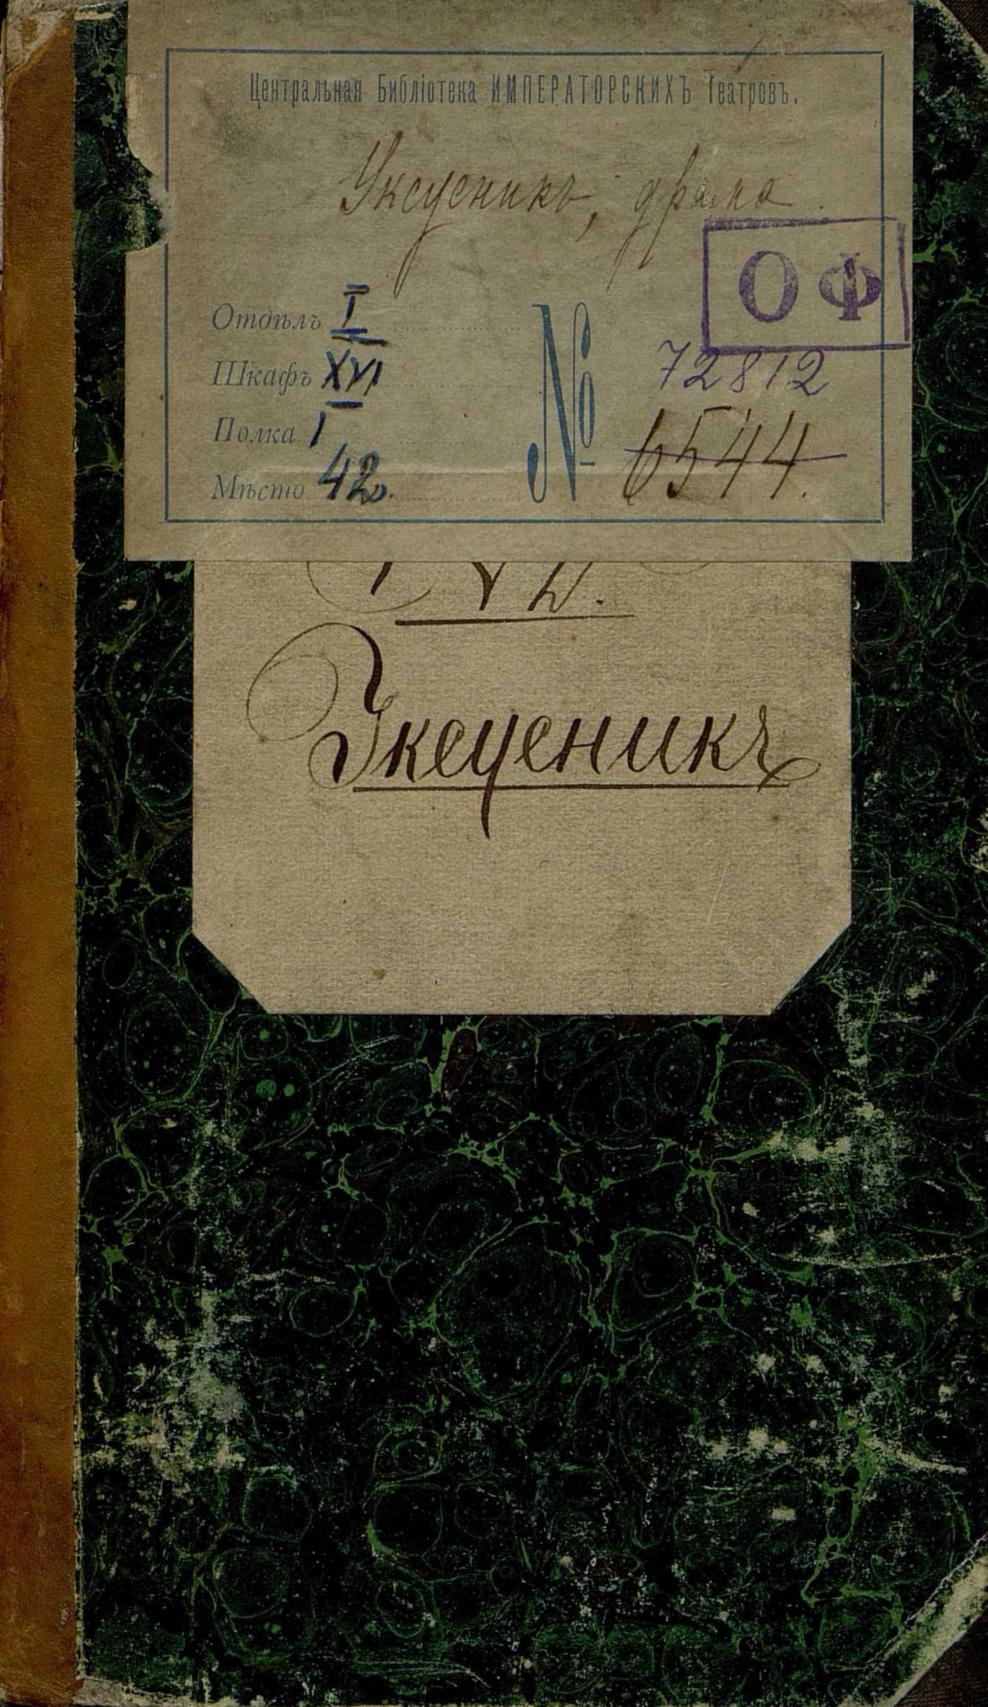 Центральная Библіотека ИМПЕРАТОРСКИХЪ Театровъ.
Уксусникъ, драма
О Ф
Отдѣлъ I
Шкафъ XVI
Полка I
Мѣсто 42.
№ 72812
6544.
Уксусникъ